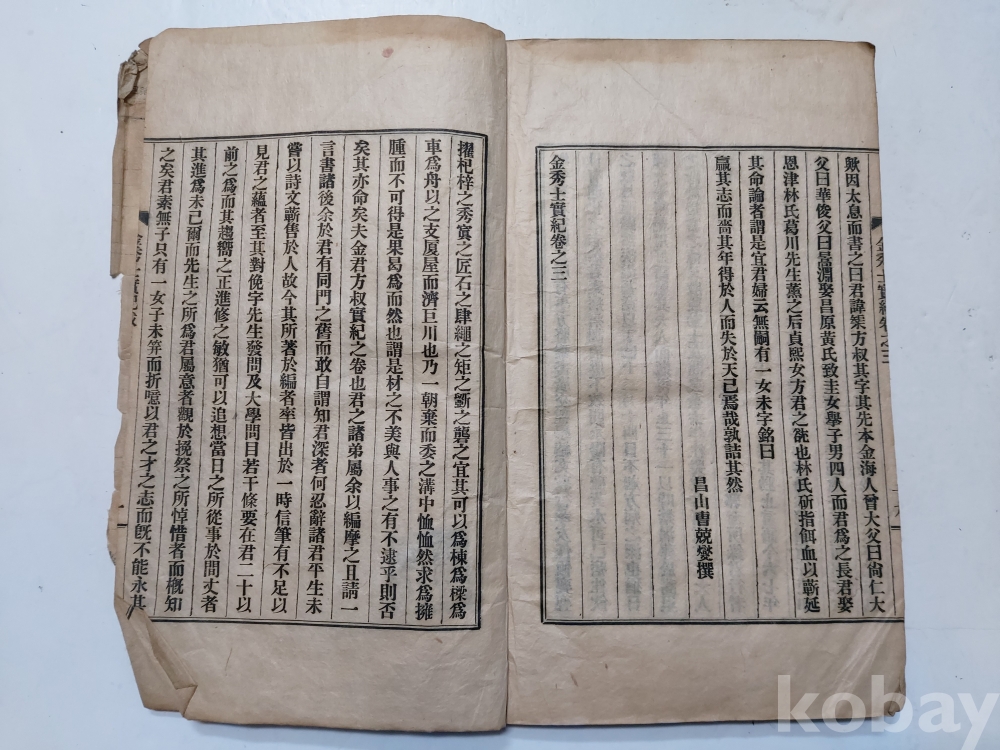 歟因太息而書之曰君諱榘方叔其字其先本金海人曾大父曰尙仁大
父曰華俊父曰景淵娶昌原黃氏致圭女擧子男四人而君爲之長君娶
恩津林氏葛川先生薰之后貞熙女方君之 也林氏斫指餌血以蘄延
其命論者謂是宜君婦云無嗣有一女未字銘曰
贏其志而嗇其年得於人而失於天已焉哉孰詰其然
昌山曺兢燮撰
金秀士實紀卷之三
金秀士實紀卷之三
擢杞梓之秀寘之匠石之肆繩之矩之斵之礱之宜其可以爲棟爲樑爲
車爲舟以之支厦屋而濟巨川也乃一朝棄而委之溝中恤恤然求爲擁
腫而不可得是果曷爲而然也謂是材之不美與人事之有不逮乎則否
矣其亦命矣夫金君方叔實紀之卷也君之諸弟屬余以編摩之且請一
言書諸後余於君有同門之舊而敢自謂知君深者何忍辭諸君平生未
嘗以詩文蘄售於人故今其所著於編者率皆出於一時信筆有不足以
見君之蘊者至其對俛宇先生發問及大學問目若干條要在君二十以
前之爲而其趨嚮之正進修之敏猶可以追想當日之所從事於問丈者
其進爲未已爾而先生之所爲君屬意者觀於挽祭之所悼惜者而槪知
之矣君素無子只有一女子未筓而折噫以君之才之志而旣不能永其